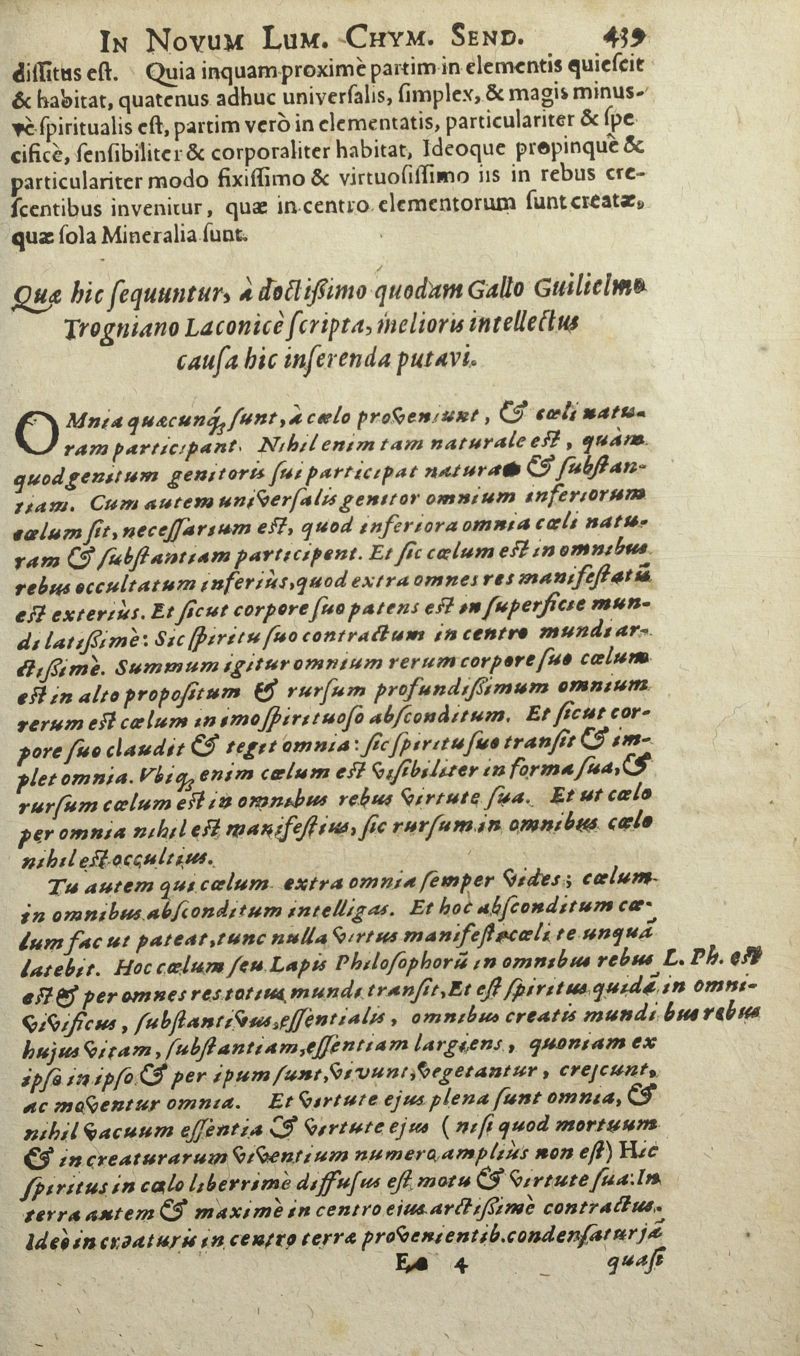 IN NOVUM LUM. CHYM. SEND. 439
diſſitus eſt. Quia inquam proximè partim in elementis quieſcit
& habitat, quatenus adhuc univerſalis, ſimplex, & magis minus-
vè ſpiritualis eſt, partim verò in elementatis, particulariter & ſpe
cificè, ſenſibiliter & corporaliter habitat, Ideoque propinquè &
particulariter modo fixiſſimo & virtuoſiſſimo iis in rebus cre-
ſcentibus invenitur, quæ in centro elementorum ſunt creatæ,
quæ ſola Mineralia ſunt.
Quæ hic ſequuntur, à doctiſſimo quodam Gallo Guilielmo
Trogniano Laconicè ſcripta, melioris intellectus
cauſa hic inſerenda putavi.
OMnia quæcunq; ſunt, à cœlo proveniunt, & cœli natu-
ram participant. Nihil enim tam naturale eſt, quàm
quod genitum genitoris ſui participat naturam & ſubſtan-
tiam. Cum autem univerſalis genitor omnium inferiorum
cœlum ſit, neceſſarium eſt, quod inferiora omnia cœli natu-
ram & ſubſtantiam participent. Et ſic cœlum eſt in omnibus
rebus occultatum inferiùs, quod extra omnes res manifeſtatũ
eſt exteriùs. Et ſicut corpore ſuo patens eſt in ſuperficie mun-
di latiſſimè: Sic ſpiritu ſuo contractum in centro mundi ar-
ctiſſimè. Summum igitur omnium rerum corpore ſuo cœlum
eſt in alto propoſitum & rurſum profundiſſimum omnium
rerum eſt cœlum in imo ſpirituoſo abſconditum. Et ſicut cor-
pore ſuo claudit & tegit omnia: ſic ſpiritu ſuo tranſit & im-
plet omnia. Vbiq; enim cœlum eſt viſibiliter in forma ſua, &
rurſum cœlum eſt in omnibus rebus virtute ſua. Et ut cœlo
per omnia nihil eſt manifeſtius, ſic rurſum in omnibus cœlo
nihil eſt occultius.
Tu autem qui cœlum extra omnia ſemper vides; cœlum
in omnibus abſconditum intelligas. Et hoc abſconditum cœ-
lum fac ut pateat, tunc nulla virtus manifeſto cœli te unquã
latebit. Hoc cœlum ſeu Lapis Philoſophorũ in omnibus rebus L. Ph. eſt
eſt & per omnes res totius mundi tranſit, Et eſt ſpiritus quidã in omni-
vivificus, ſubſtantivus, eſſentialis, omnibus creatis mundi bus rebus
hujus vitam, ſubſtantiam, eſſentiam largiens, quoniam ex
ipſo in ipſo & per ipum ſunt, vivunt, vegetantur, creſcunt,
ac moventur omnia. Et virtute ejus plena ſunt omnia, &
nihil vacuum eſſentia & virtute ejus (niſi quod mortuum
& in creaturarum viventium numero ampliùs non eſt) Hic
ſpiritus in cœlo liberrimè diffuſus eſt motu & virtute ſua: In
terra autem & maximè in centro eius arctiſſimè contractus.
Ideò in creaturis in centro terræ provenientib. condenſatur jã
Ee 4 quaſi